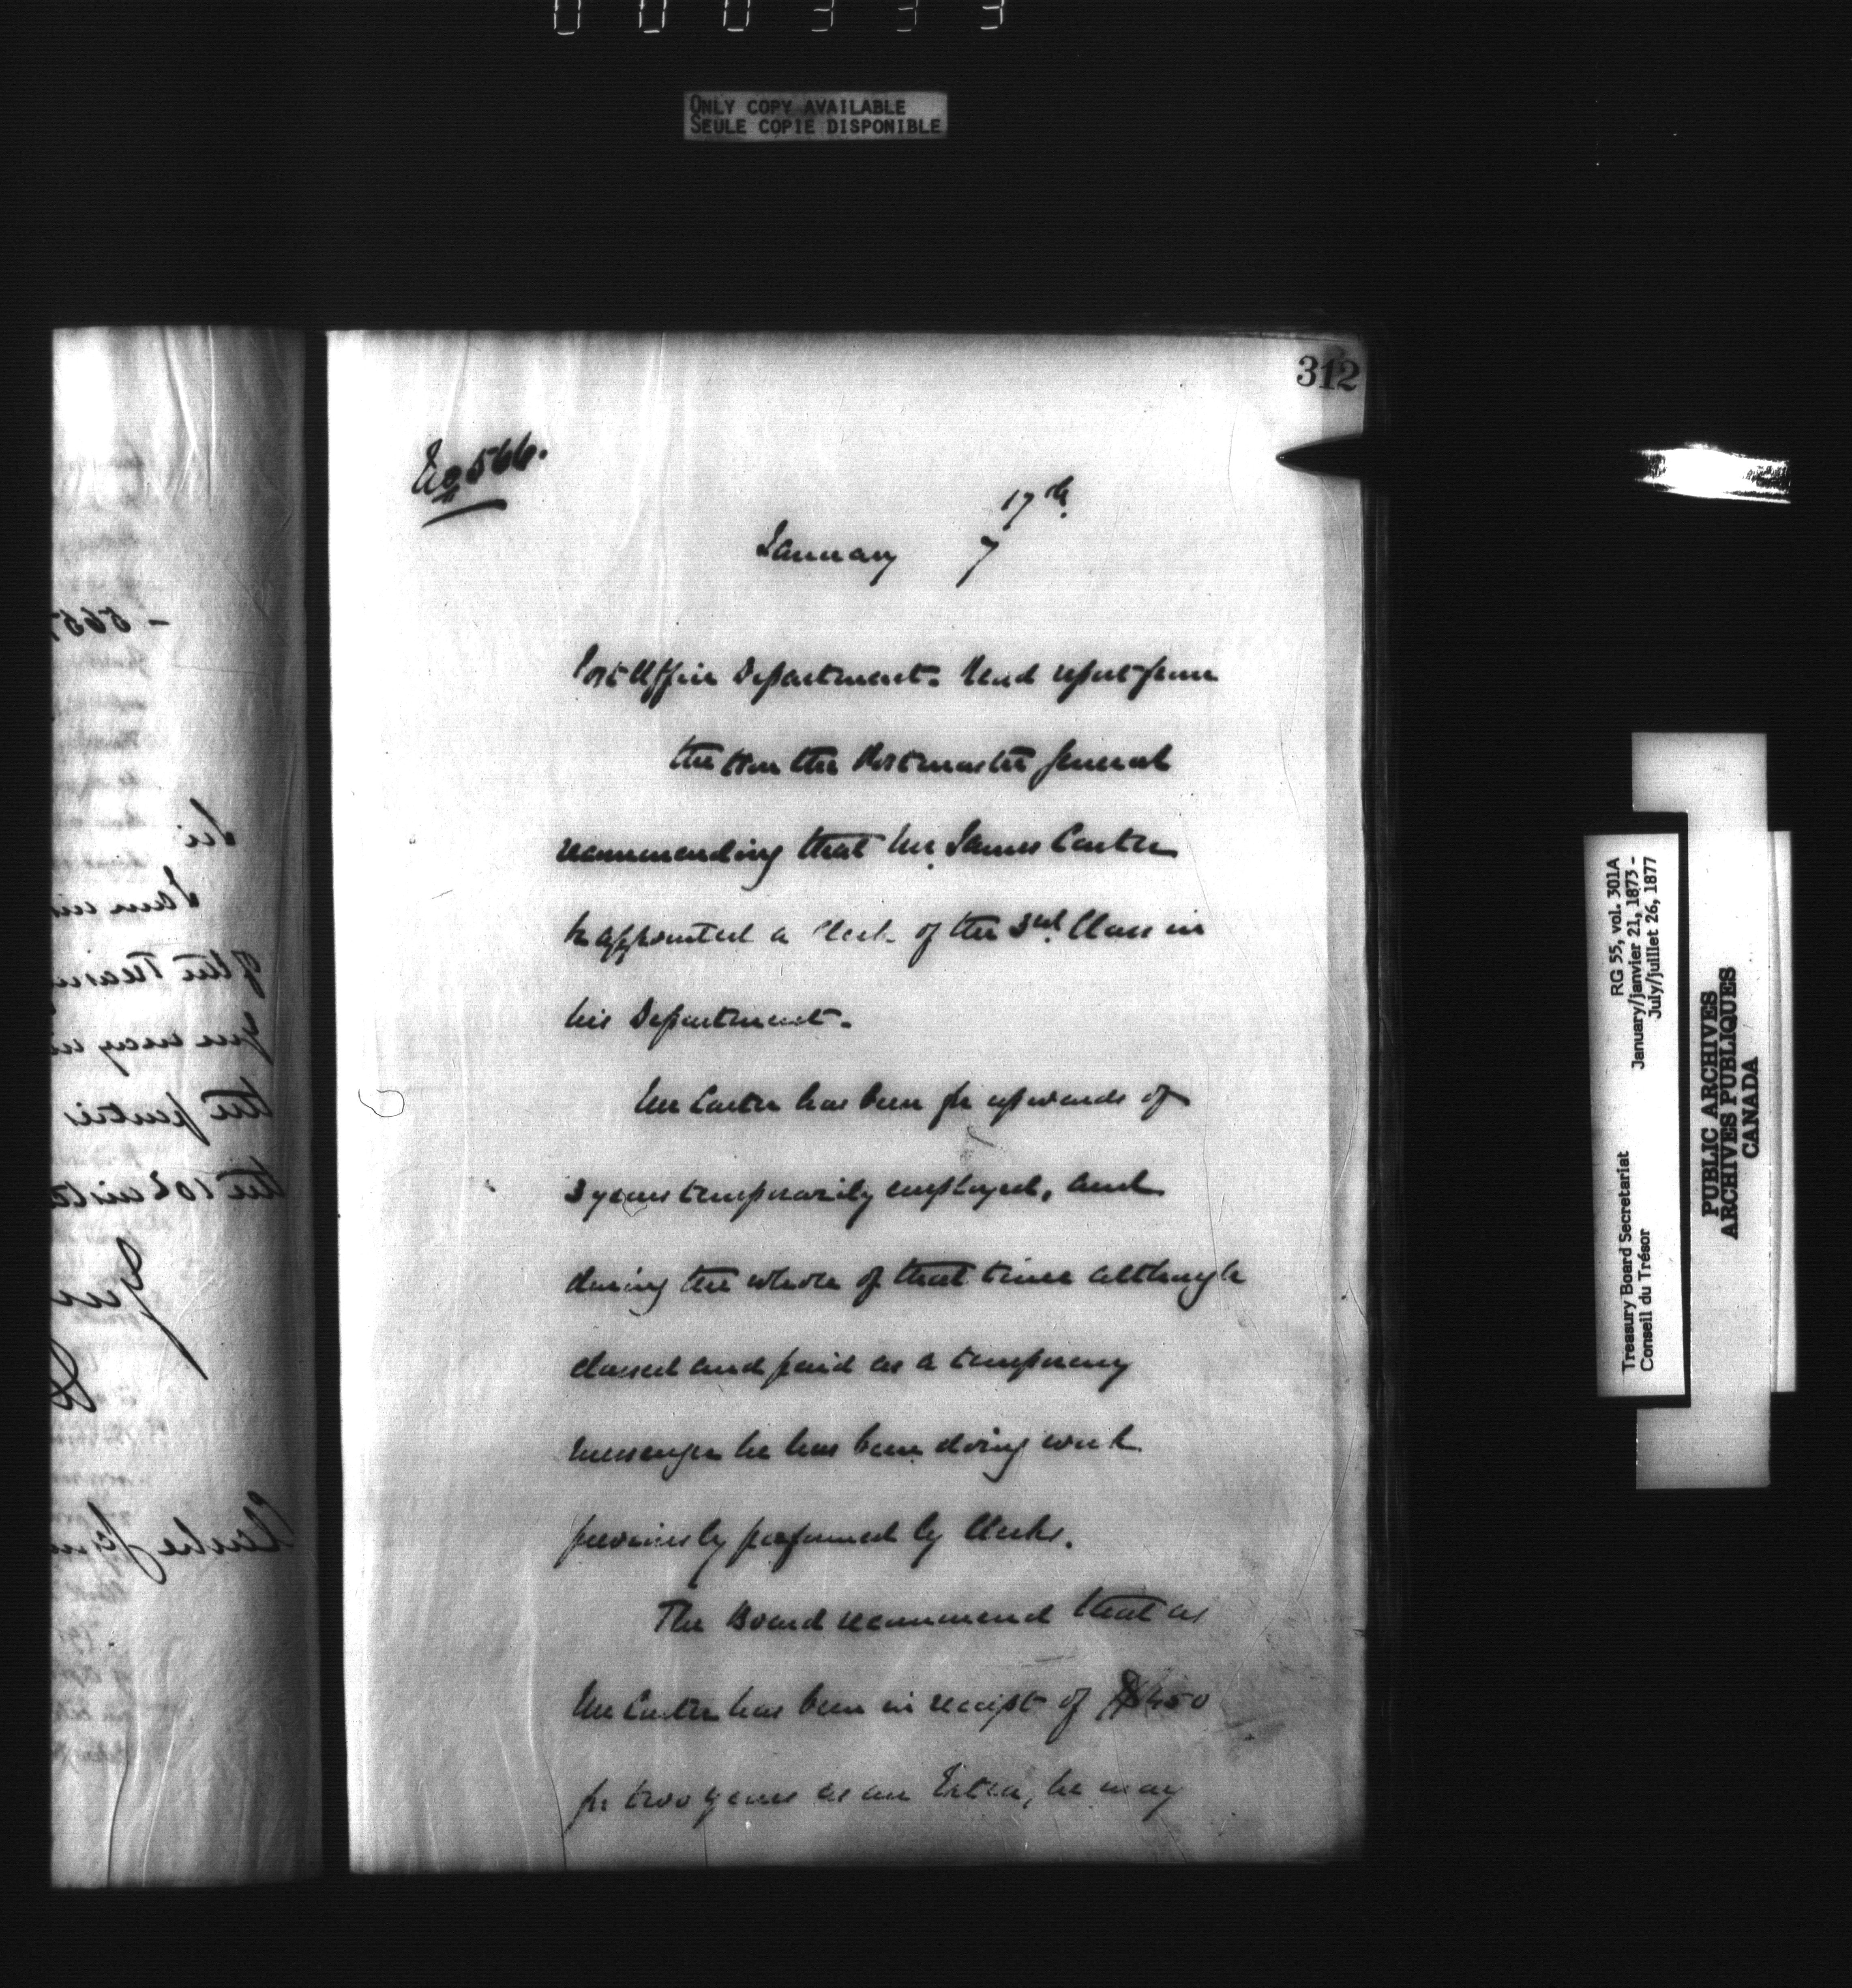 000333
ONLY COPY AVAILABLE
SEULE COPIE DISPONIBLE
312
No 566.
17th.
January 7
Post Office Department. Read report from
the Hon the Postmaster General
recommending that Mr. James Carter
be appointed a Clerk of the 3rd. Class in
his Department.
Mr Carter has been for upwards of
3 years temporarily employed, and
during the whole of that time although
classed and paid as a temporary
messenger he has been doing work
previously performed by Clerks.
The Board recommend that as
Mr Carter has been in receipt of $450
for two years as an Extra, he may
Sir
of the
you may
the
the 10
RG 55, vol. 301A
January/janvier 21, 1873 -
July/juillet 26, 1877
Treasury Board Secretariat
Conseil du Trésor
PUBLIC ARCHIVES
ARCHIVES PUBLIQUES
CANADA